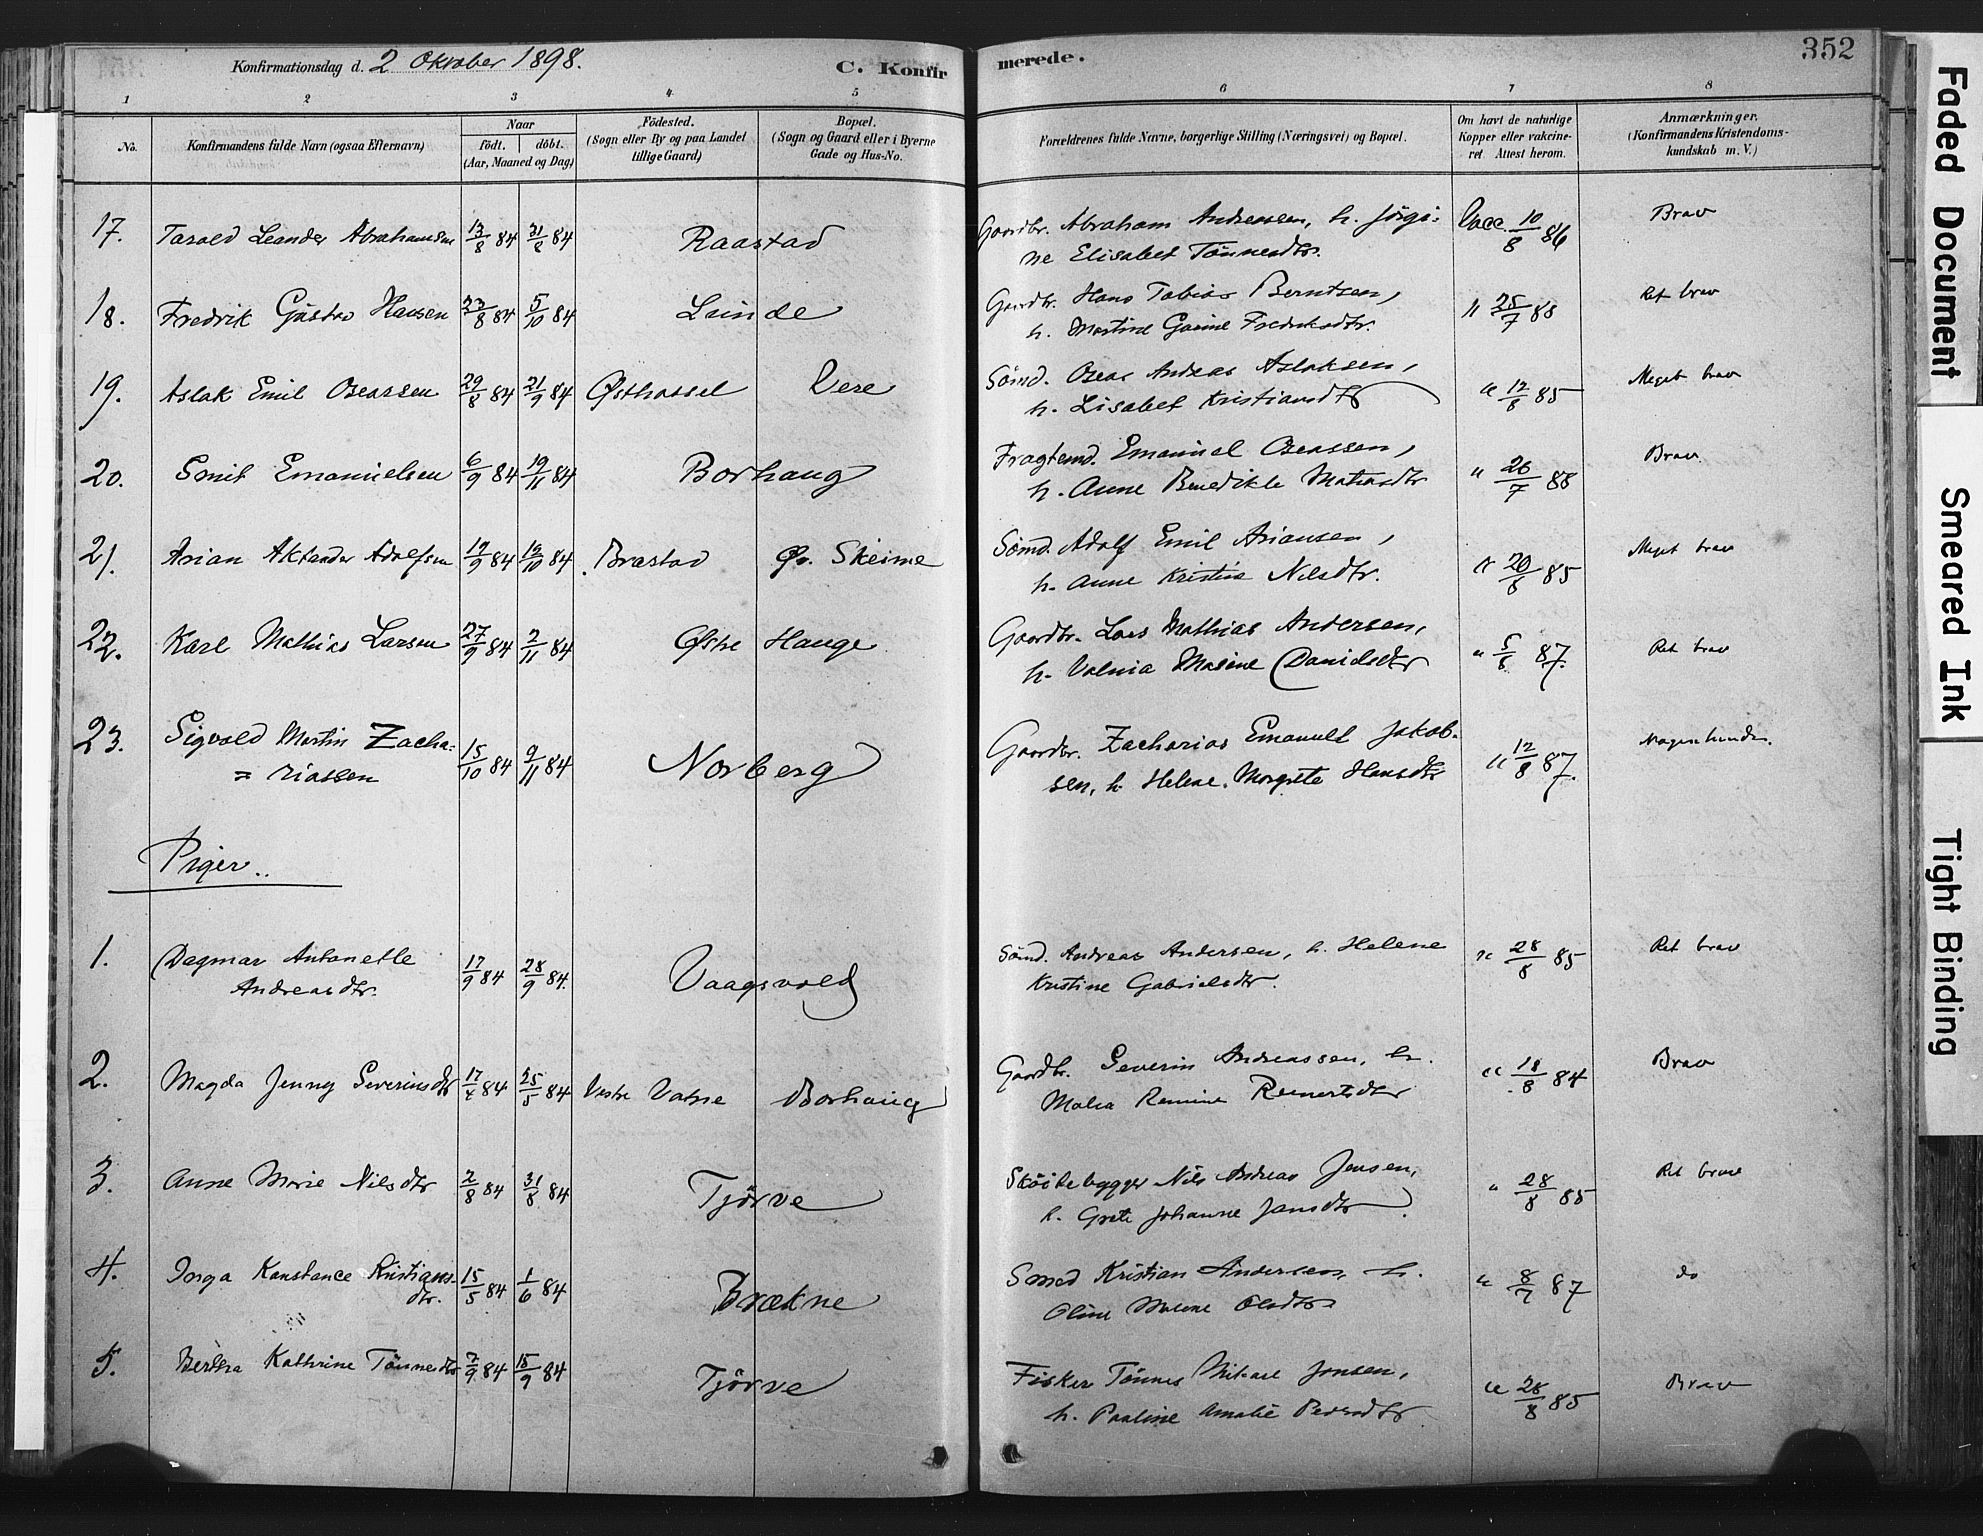 352
Konfirmationsdag d. 2 Oktober 1898.
C. Konfirmerede.
1 2 3 4 5 6 7 8
No.
Konfirmandens fulde Navn (ogsaa Efternavn)
Naar
födt. döbt.
(Aar, Maaned og Dag)
Födested.
(Sogn eller By og paa Landet
tillige Gaard)
Bopæl.
(Sogn og Gaard eller i Byerne
Gade og Hus-No.
Forældrenes fulde Navne, borgerlige Stilling (Næringsvei) og Bopæl.
Om havt de naturlige
Kopper eller vakcine-
ret. Attest herom.
Anmærkninger.
(Konfirmandens Kristendoms-
kundskab m. V.)
17. Tarald Leander Abrahamsen 13/8 84 31/8 84 Raastad Gaardbr. Abraham Andreassen, h. Jörgi- Vacc. 10/8 86 Brav
ne Elisabet Tönnesdtr.
18. Fredrik Gustav Hansen 23/8 84 5/10 84 Lunde Gaardbr. Hans Tobias Berntsen, " 25/7 88 Ret brav
h. Martine Gurine Fredriksdtr.
19. Aslak Emil Oseassen 29/8 84 21/9 84 Østhassel Vere Sömd. Oseas Andreas Aslaksen, " 12/8 85 Meget brav
h. Lisabet Kristiansdtr
20. Emil Emanuelsen 6/9 84 19/11 84 Borhaug Fragtemd. Emanuel Oseassen, " 26/7 88 Brav.
h. Anne Benedikte Matiasdtr
21. Arian Aktander Adolfsen 19/9 84 12/10 84 Brastad Øv. Skeime Sömd. Adolf Emil Ariansen, " 20/8 85 Meget brav
h. Anne Kristine Nilsdtr.
22. Karl Mathias Larsen 27/9 84 2/11 84 Østre Hauge Gaardbr. Lars Mathias Andersen, " 5/8 87. Ret brav
h. Valnia Malene Danielsdtr
23. Sigvald Martin Zacha= 15/10 84 9/11 84 Norberg Gaardbr. Zacharias Emanuel Jakob- " 12/8 87.
= riassen sen, h. Helene Margrete Hansdtr
Piger..
1. Dagmar Antonette 17/9 84 28/9 84. Vaagsvold Sömd. Andreas Andersen, h. Helene " 28/8 85 Ret brav
Andreasdtr. Kristine Gabrielsdtr.
2. Magda Jenny Severinsdtr 17/4 84 25/5 84 Vestre Vatne Borhaug Gaardbr. Severin Andreassen, h. " 18/8 84 Brav
Malia Remine Reinertsdtr
3. Anne Marie Nilsdtr 2/8 84 31/8 84 Tjörve Sköitebygger Nils Andreas Jensen, " 28/8 85 Ret brav
h. Grete Johanne Jansdtr
4. Inga Konstance Kristians- 15/5 84 1/6 84 Brækne Smed Kristian Andersen, h. " 8/7 87 do
dtr. Oline Malene Olsdtr
5. Bertha Kathrine Tönnesdtr 7/9 84 15/9 84 Tjörve Fisker Tönnes Mikael Jonsen, " 28/8 85 Brav
h. Pauline Amalie Pedersdtr
Faded Document
Smeared Ink
Tight Binding